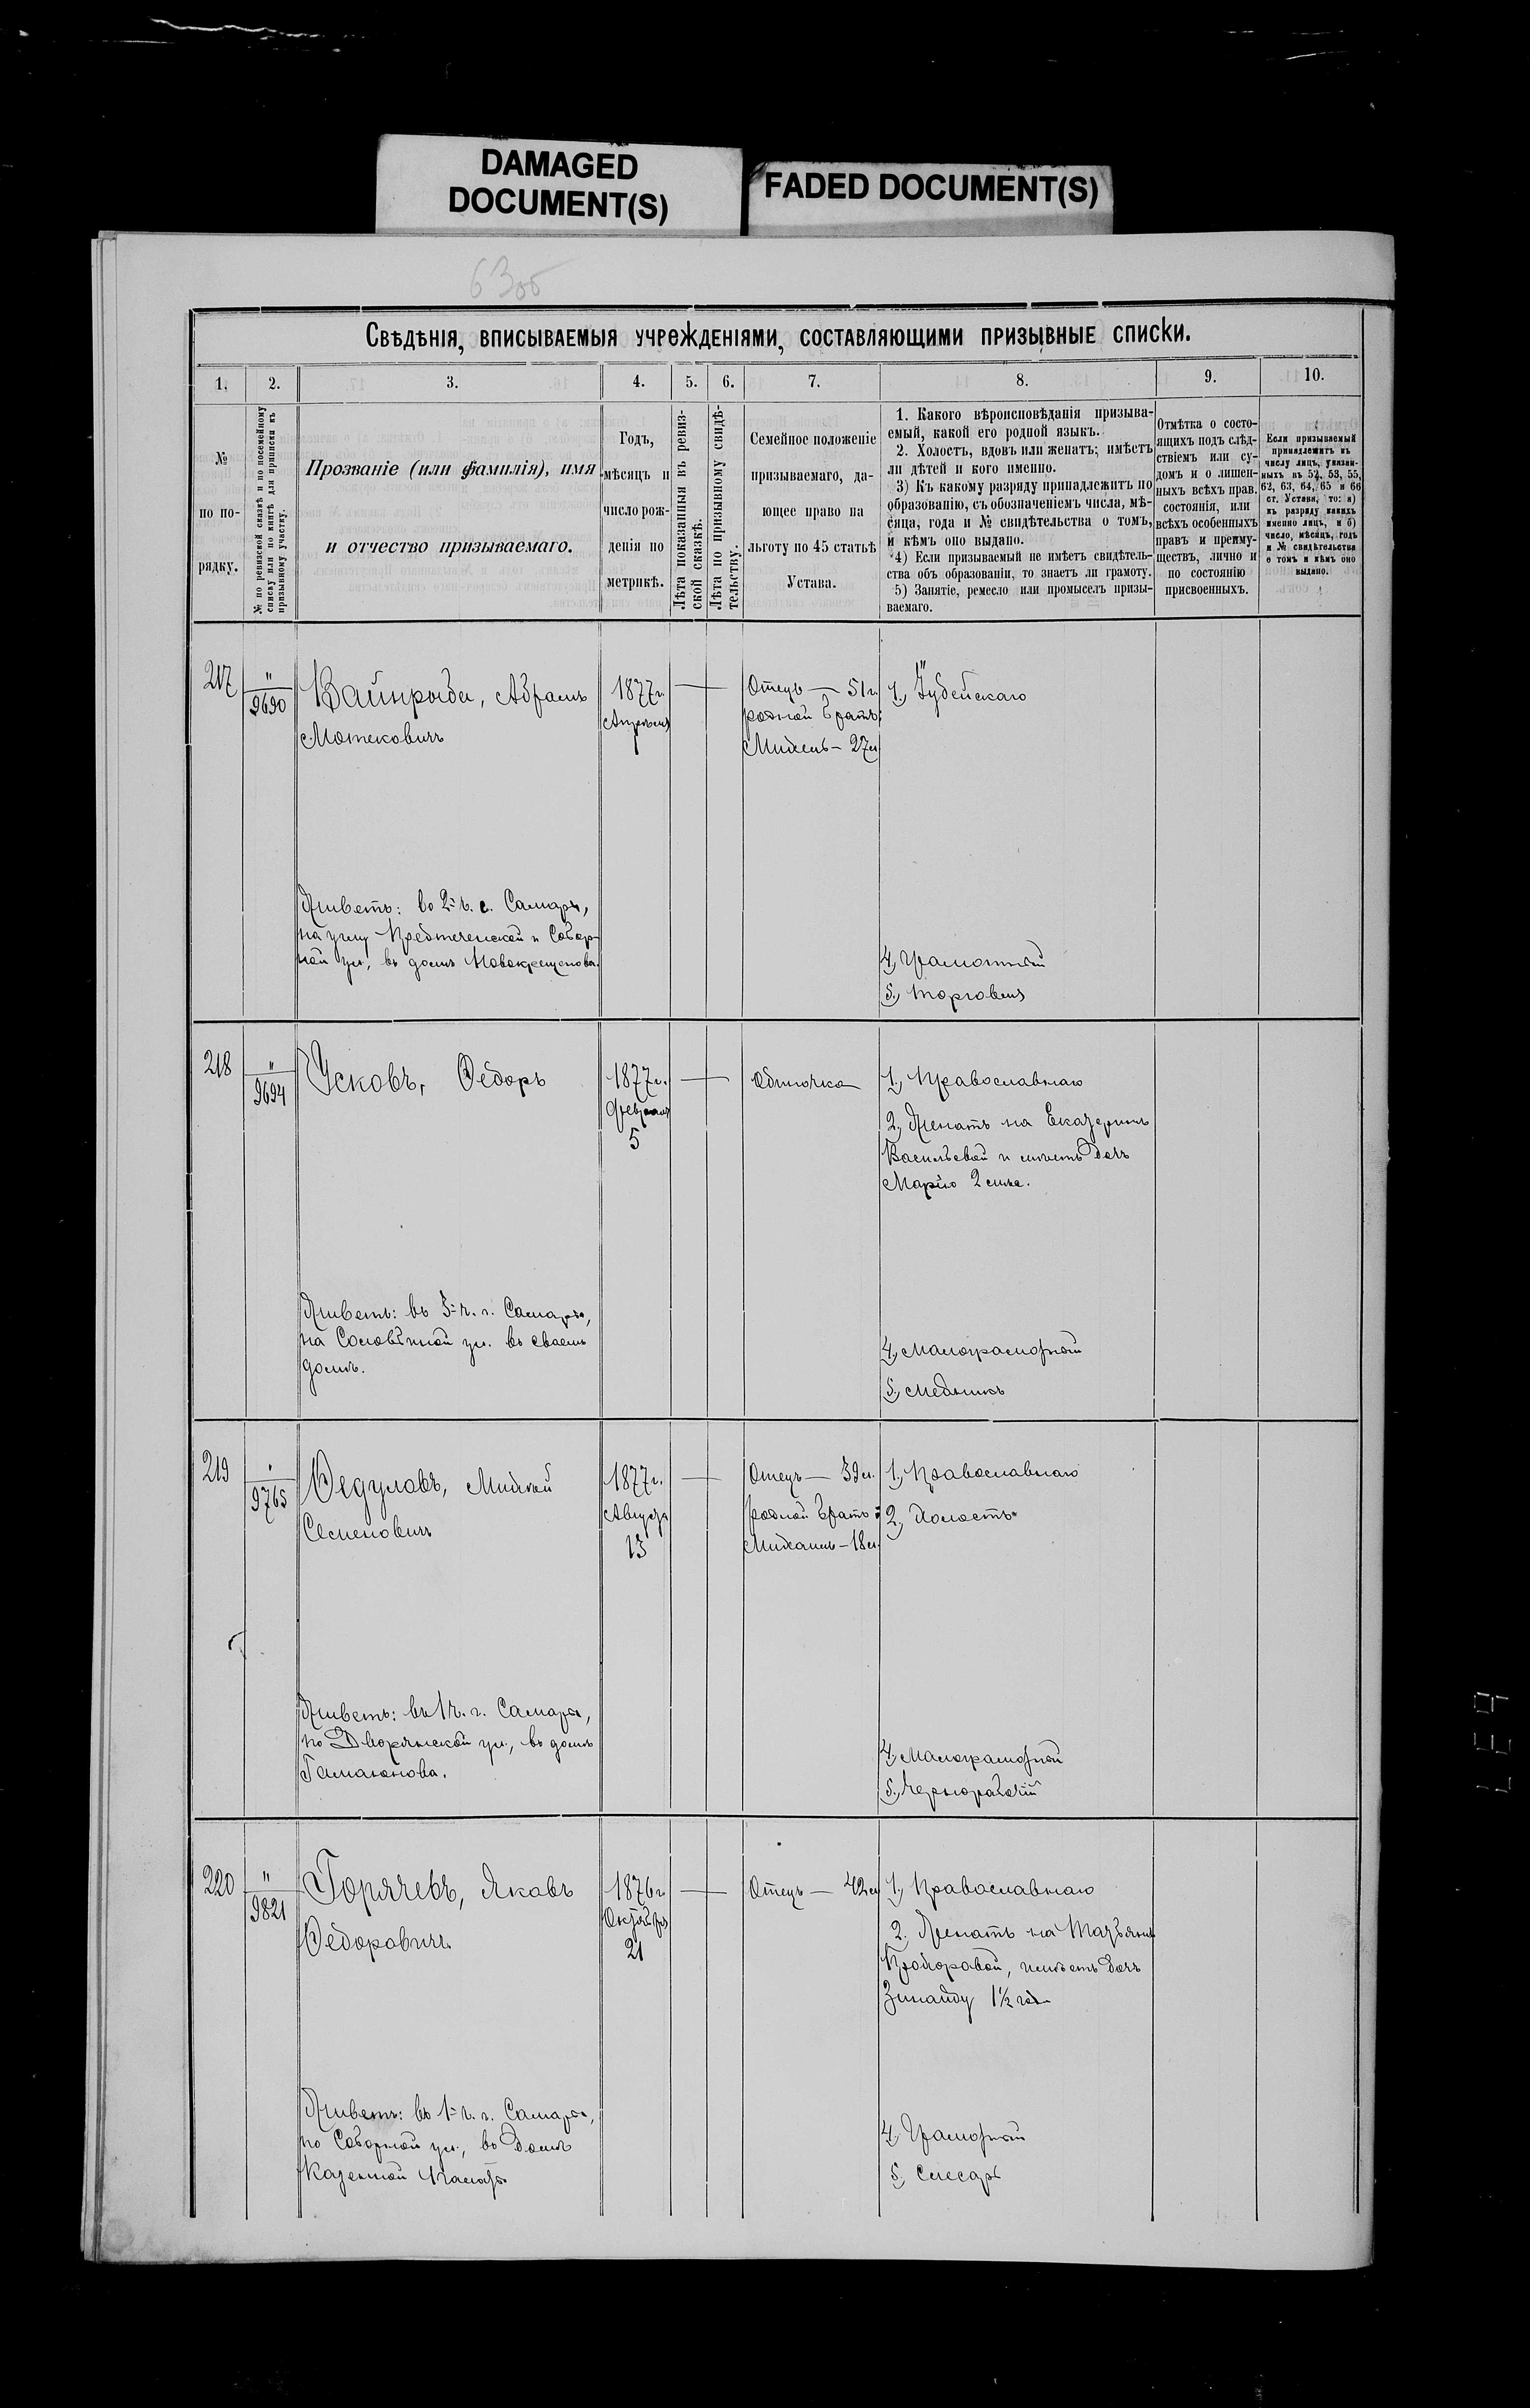 DAMAGED
DOCUMENT(S)
FADED DOCUMENT(S)
63об
Свѣдѣнія, вписываемыя учрежденіями, составляющими призывные списки.
1. 2. 3. 4. 5. 6. 7. 8. 9. 10.
№
по по-
рядку.
№ по ревизской сказкѣ и по посемейному
списку или по книгѣ для приписки къ
призывному участку.
Прозваніе (или фамилія), имя
и отчество призываемаго.
Годъ,
мѣсяцъ и
число рож-
денія по
метрикѣ.
Лѣта показанныя въ ревиз-
ской сказкѣ.
Лѣта по призывному свидѣ-
тельству.
Семейное положеніе
призываемаго, да-
ющее право на
льготу по 45 статьѣ
Устава.
1. Какого вѣроисповѣданія призыва-
емый, какой его родной языкъ.
2. Холостъ, вдовъ или женатъ; имѣетъ
ли дѣтей и кого именно.
3) Къ какому разряду принадлежитъ по
образованію, съ обозначеніемъ числа, мѣ-
сяца, года и № свидѣтельства о томъ,
и кѣмъ оно выдано.
4) Если призываемый не имѣетъ свидѣтель-
ства объ образованіи, то знаетъ ли грамоту.
5) Занятіе, ремесло или промыселъ призы-
ваемаго.
Отмѣтка о состо-
ящихъ подъ слѣд-
ствіемъ или су-
домъ и о лишен-
ныхъ всѣхъ прав.
состоянія, или
всѣхъ особенныхъ
правъ и преиму-
ществъ, лично и
по состоянію
присвоенныхъ.
Если призываемый
принадлежитъ къ
числу лицъ, указан-
ныхъ въ 52, 53, 55,
62, 63, 64, 65 и 66
ст. Устава, то: а)
къ разряду какихъ
именно лицъ, и б)
число, мѣсяцъ, годъ
и № свидѣтельства
о томъ и кѣмъ оно
выдано.
217
"
9690
Вайнрыбъ, Абрамъ
Мотековичъ
1877г.
Апрѣля
1
Отецъ — 51г.
родной братъ:
27л
1, Іудейскаго
Живетъ: во 2-ч. г. Самары,
на углу Предтеченской и Собор-
ной ул., въ домѣ Новокрещенова.
4, Грамотный
5, торговля
218
"
9694
Усковъ, Ѳедоръ
1877г.
Февраля
5
Одиночка
1, Православнаго
2, Женатъ на Екатеринѣ
Васильевой и имѣетъ дочь
Марію
Живетъ: въ 3-ч. г. Самары,
на ул. въ своемъ
домѣ.
4, Малограмотный
5, Мѣдникъ
219
"
9765
Ѳедуловъ,
Семеновичъ
1877г.
Августа
13
Отецъ — 39л.
родной братъ:
Михаилъ – 18л.
1, Православнаго
2, Холостъ
Живетъ: въ 1ч. г. Самары,
по Дворянской ул., въ домѣ
4, Малограмотный
5, Чернорабочій
220
"
9821
Горячевъ, Яковъ
Ѳедоровичъ
1876г
Октября
21
Отецъ — 42л
1, Православнаго
2, Женатъ на Татьянѣ
имѣетъ дочь
Зинаиду 1½ года
Живетъ: въ 1-ч. г. Самары,
по Соборной ул., въ домѣ
Казенной Палаты
4, Грамотный
5, Слесарь